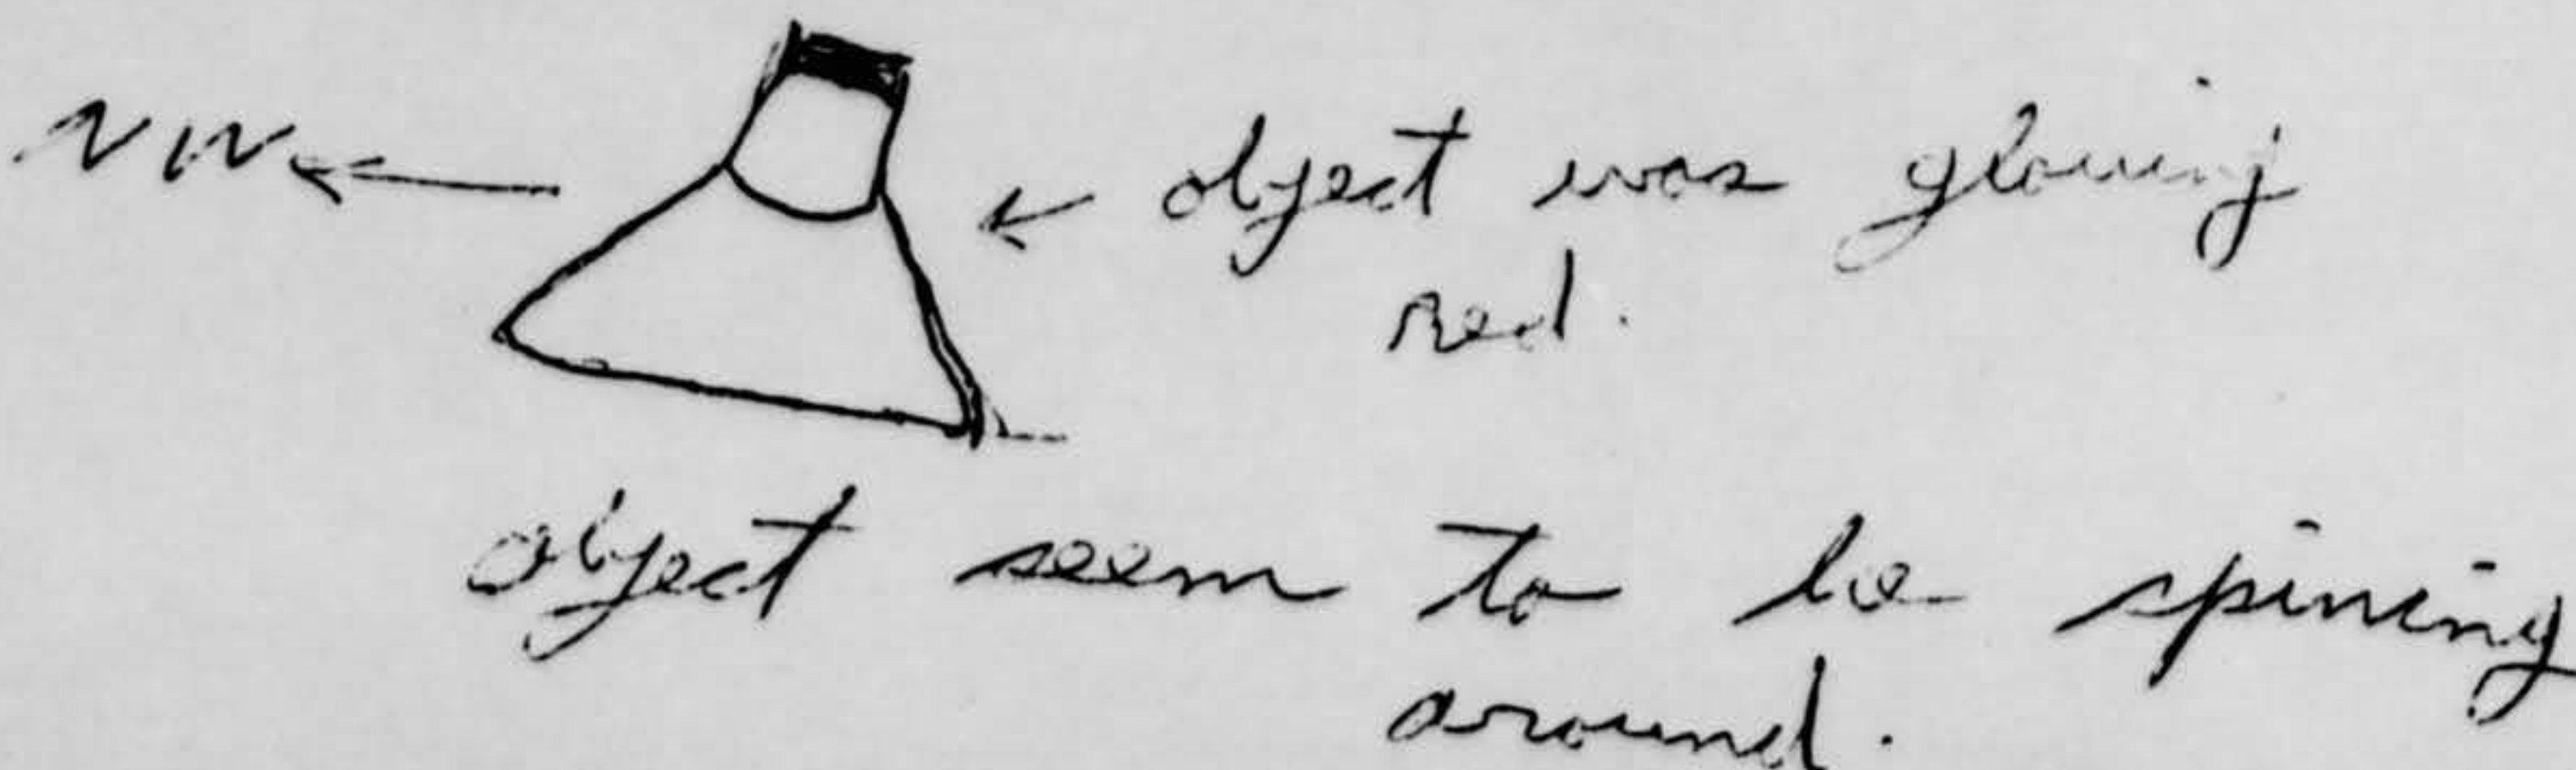 NW
object was glowing
red.
object seem to be spining
around.